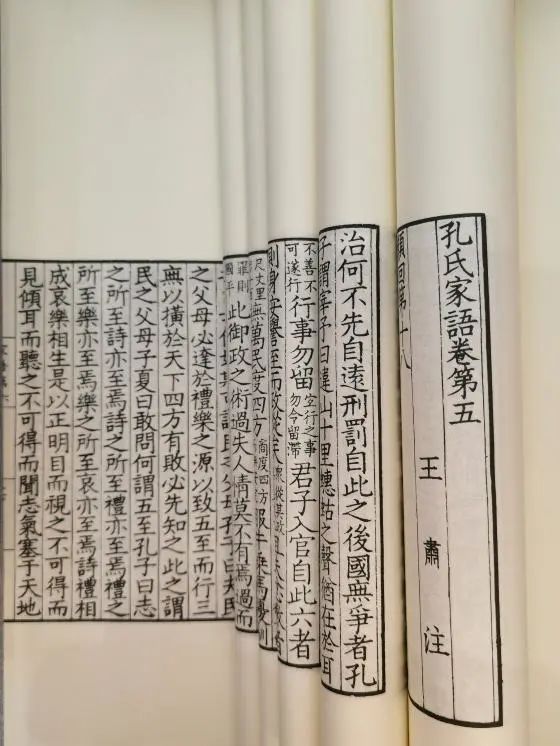 孔氏家語卷第五
王肅注
治何不先自遠刑罰自此之後國無爭者孔
子謂宰子曰違山十里蟪蛄之聲猶在於耳
不善不可遂行行事勿留空行之事勿令留滯君子入官自此六者
則身安譽至而政從矣
無萬民度四方
此御政之術過失人情莫不有焉過而
之父母必達於禮樂之源以致五至而行三
無以橫於天下四方有敗必先知之此之謂
民之父母子夏曰敢問何謂五至孔子曰志
之所至詩亦至焉詩之所至禮亦至焉禮之
所至樂亦至焉樂之所至哀亦至焉詩禮相
成哀樂相生是以正明目而視之不可得而
見傾耳而聽之不可得而聞志氣塞于天地